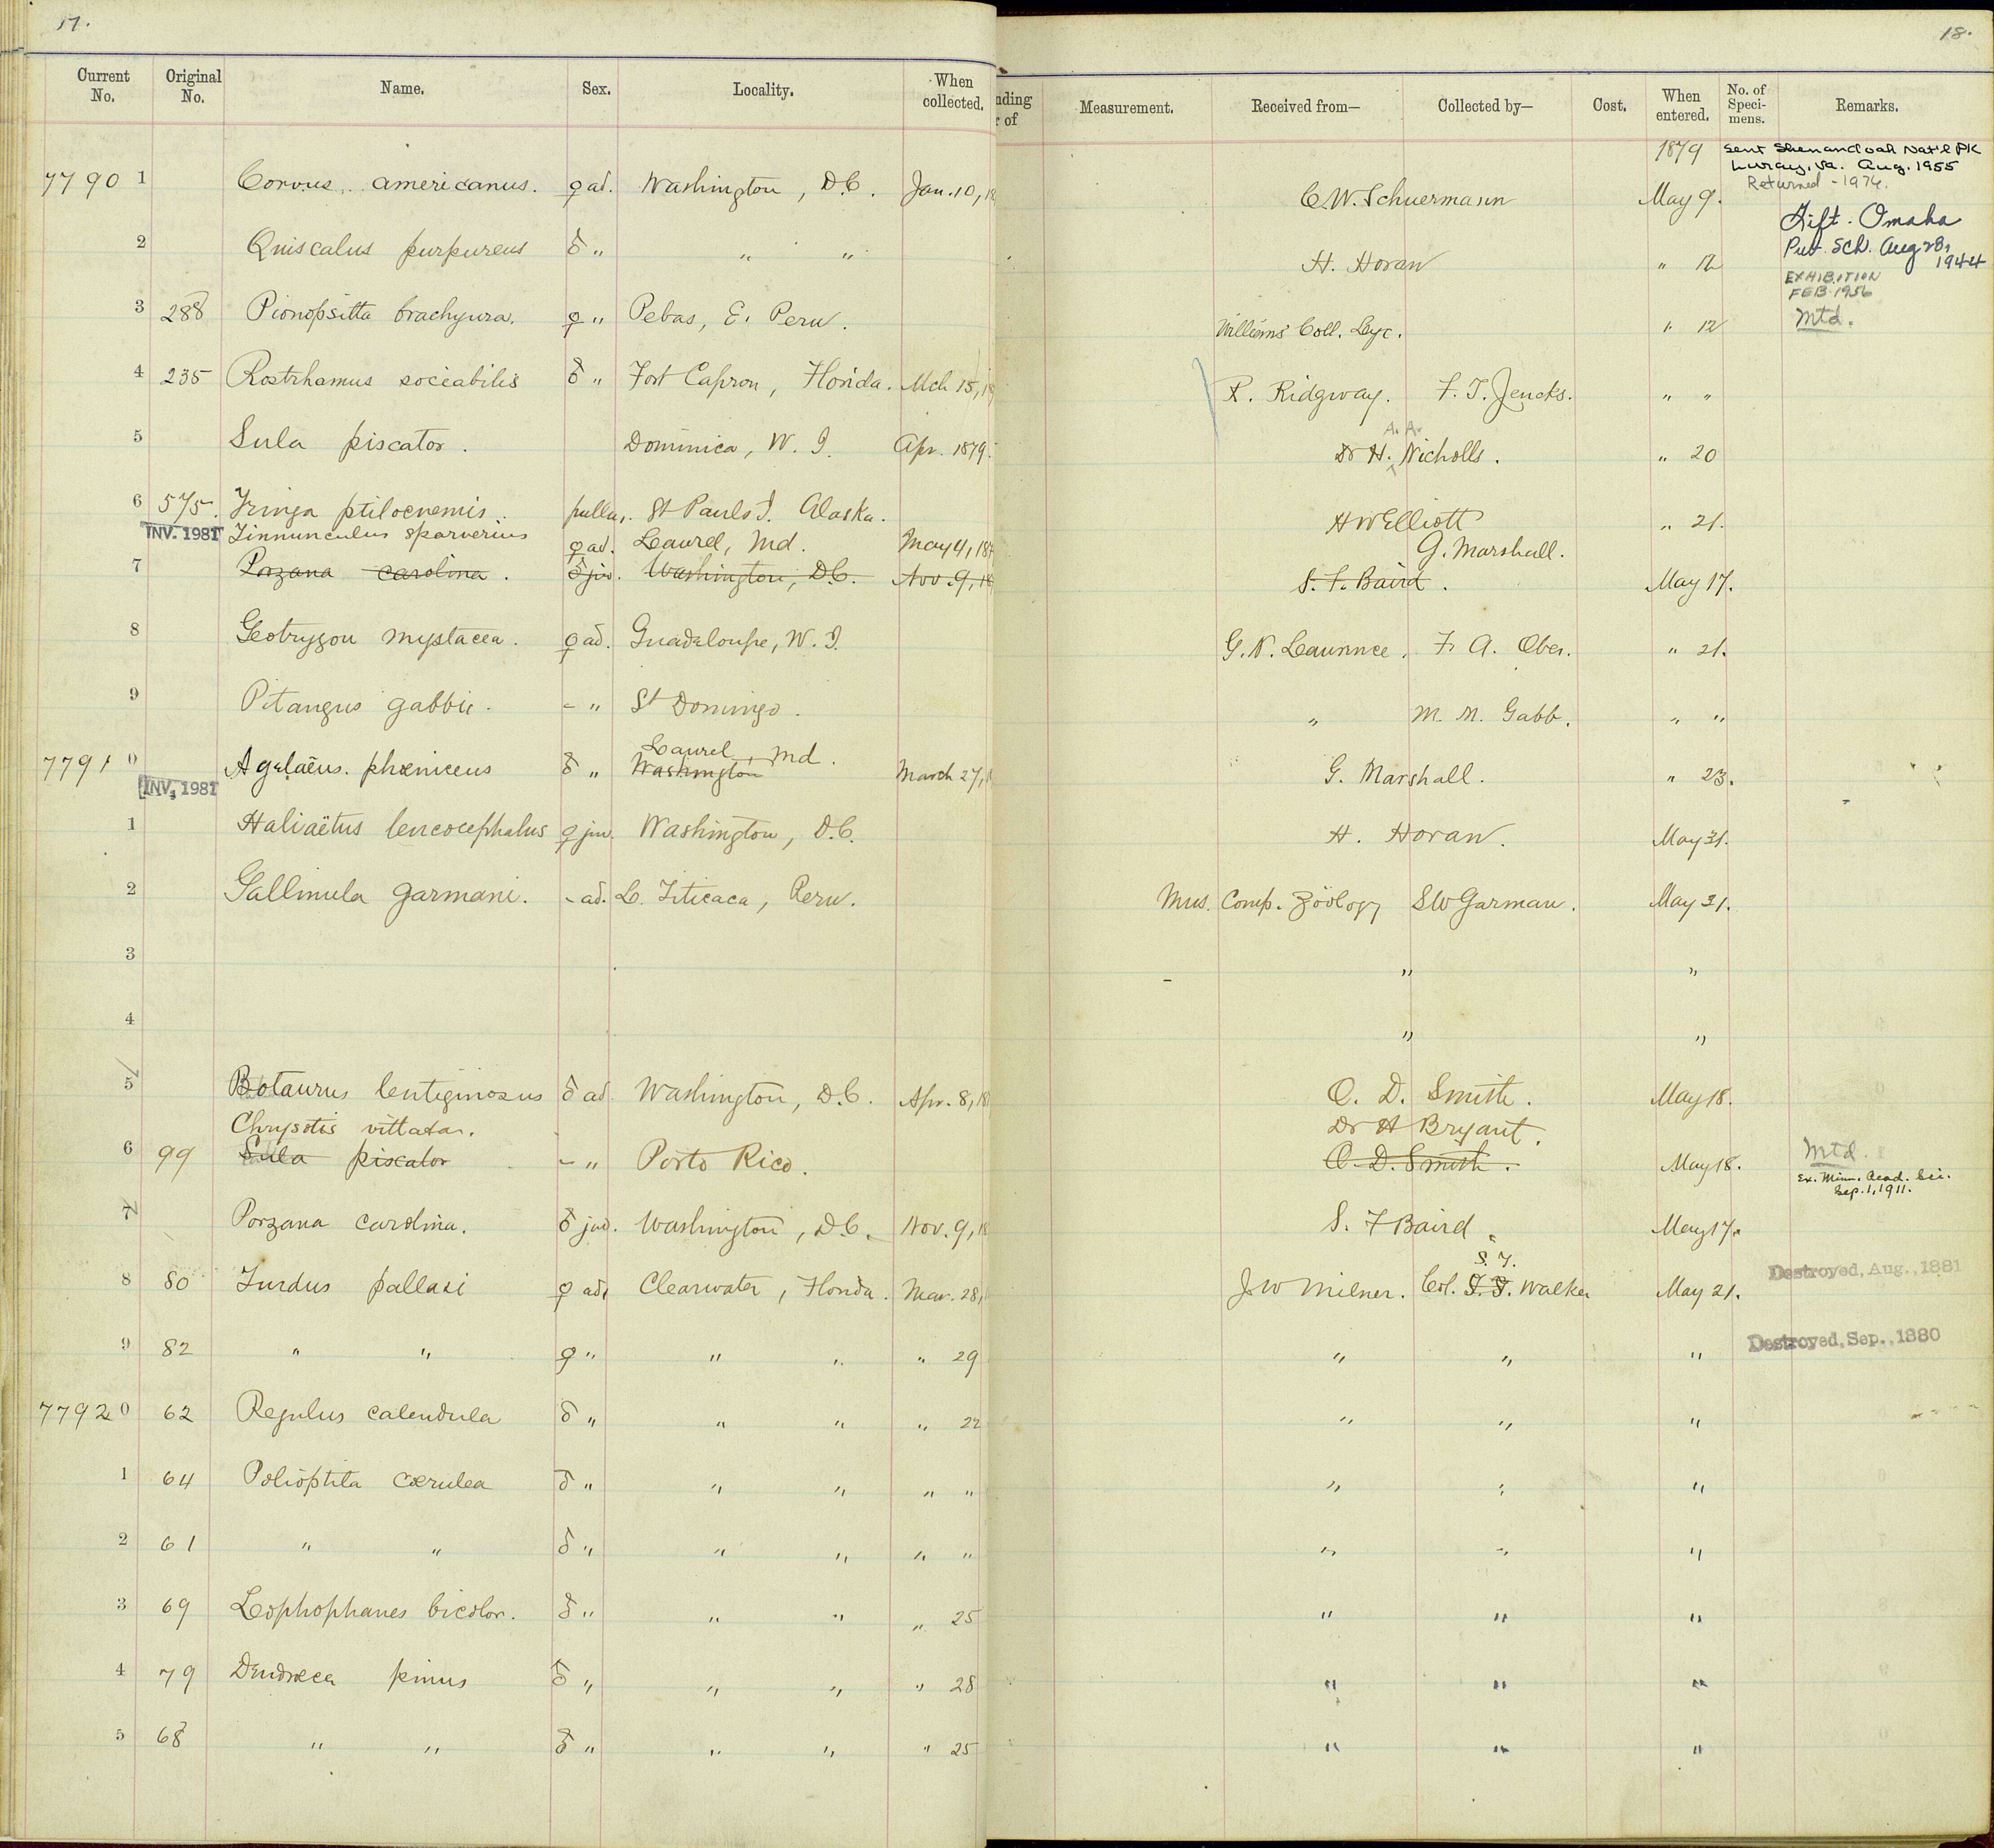 17.
18.
Current No. Original No. Name. Sex. Locality. When collected. nding r of Measurement. Received from— Collected by— Cost. When entered. No. of Speci- mens. Remarks.
1879 Sent Shenandoah Nat'l PK
Luray, Va. Aug. 1955
Returned - 1976.
7790 1 Corvus americanus. ♀ ad. Washington, D.C. Jan. 10, 18 C.W. Schuermann May 9.
2 Quiscalus purpureus ♂ " " " H. Horan " 12 Gift. Omaha
Pub. Sch. Aug 28, 1944
EXHIBITION
FEB 1956
3 288 Pionopsitta brachyura. ♀ " Pebas, E. Peru. Williams' Coll. Lyc. " 12 Mtd.
4 235 Rostrhamus sociabilis ♂ " Fort Capron, Florida. Mch 15, 18 R. Ridgway. F. T. Jencks. " "
5 Sula piscator. Dominica, W. I. Apr. 1879. Dr H. A. A. Nicholls. " 20
6 575. Tringa ptilocnemis. pullus. St Pauls I. Alaska. H W Elliott " 21.
INV. 1981 Tinnunculus sparverius ♀ ad. Laurel, Md. May 4, 18 G. Marshall.
7 Porzana carolina. ♂ juv. Washington, D.C. Nov. 9, 18 S. F. Baird. May 17.
8 Geotrygon mystacea. ♀ ad. Guadaloupe, W. I. G. N. Lawrence. F. A. Ober. " 21.
9 Pitangus gabbii. - " St Domingo. " M. M. Gabb. " "
Laurel, Md.
7791 0 Agelaëus. phœniceus ♂ " Washington March 27, 1 G. Marshall. " 23.
INV. 1981
1 Haliaëtus leucocephalus ♀ juv. Washington, D.C. H. Horan. May 31.
2 Gallinula garmani. - ad. L. Titicaca, Peru. Mus. Comp. Zöology S W Garman. May 31.
3 " "
4 " "
5 Botaurus lentiginosus ♂ ad. Washington, D.C. Apr. 8, 18 O. D. Smith. May 18.
Chrysotis vittata. Dr H Bryant.
6 99 Sula piscator - " Porto Rico. O. D. Smith. May 18. Mtd.
Ex. Minn. Acad. Sci.
Sep. 1, 1911.
7 Porzana carolina. ♂ jud. Washington, D.C. Nov. 9, 18 S. F Baird. May 17.
S. T.
8 80 Turdus pallasi ♀ ad. Clearwater, Florida. Mar. 28, J W Milner. Col. Walker May 21. Destroyed, Aug., 1881
9 82 " " ♀ " " " " 29 " " " Destroyed, Sep., 1880
7792 0 62 Regulus calendula ♂ " " " " 22 " " "
1 64 Polioptila cærulea ♂ " " " " " " " "
2 61 " " ♂ " " " " " " " "
3 69 Lophophanes bicolor. ♂ " " " " 25 " " "
4 79 Dendrœca pinus ♂ " " " " 28 " " "
5 68 " " ♂ " " " " 25 " " "